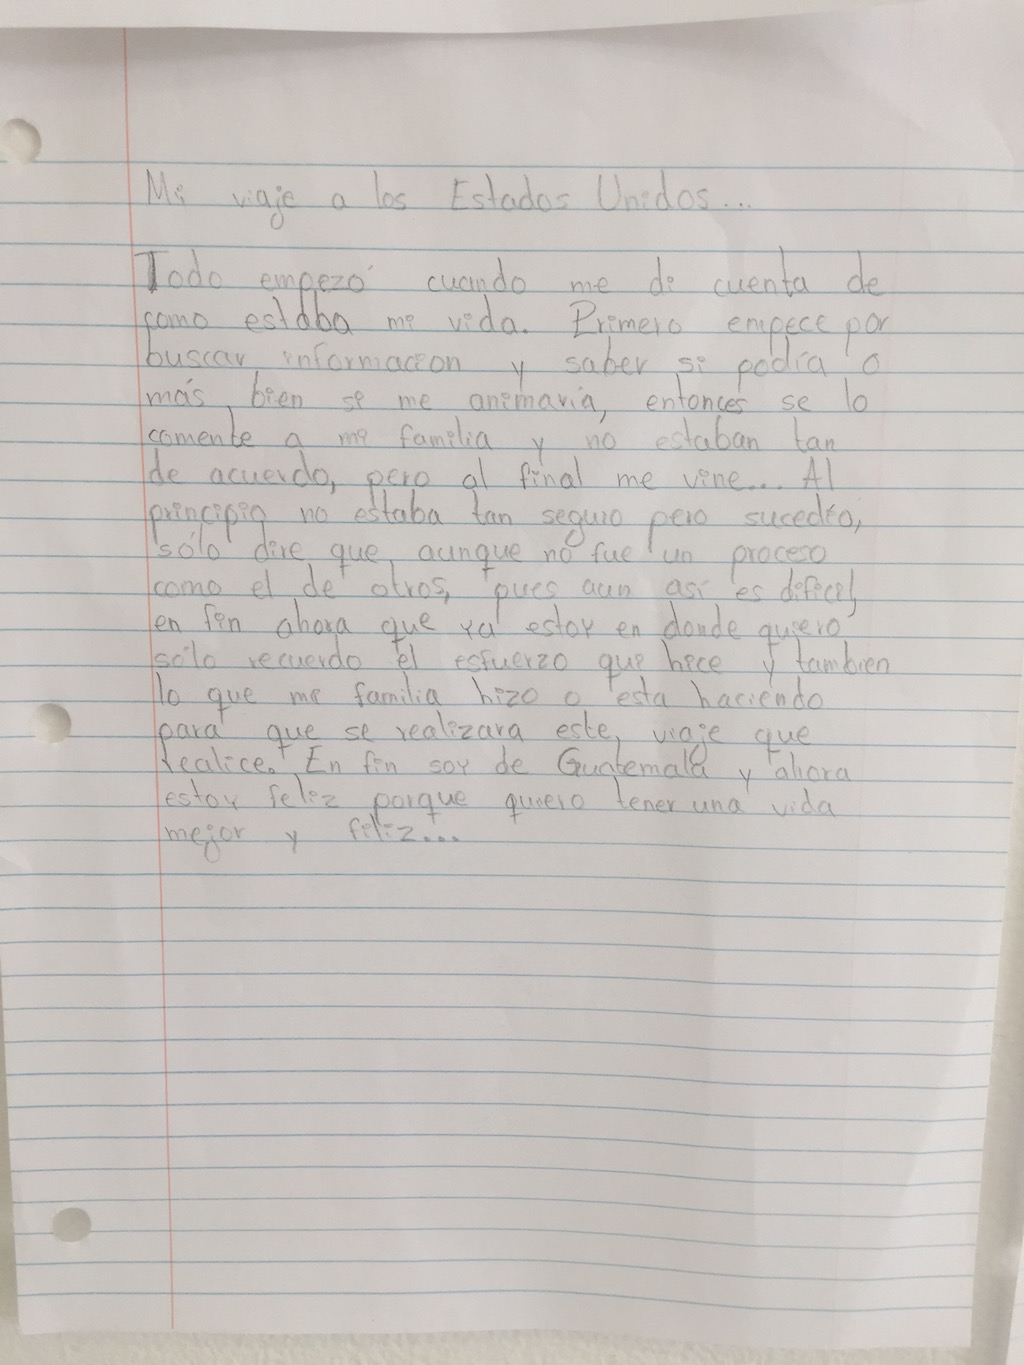 Mi viaje a los Estados Unidos...
Todo empezó cuando me di cuenta de
como estaba mi vida. Primero empece por
buscar informacion y saber si podía o
más bien si me animaría, entonces se lo
comente a mi familia y no estaban tan
de acuerdo, pero al final me vine... Al
principio no estaba tan seguro pero sucedio,
sólo dire que aunque no fue un proceso
como el de otros, pues aun así es dificil,
en fin ahora que ya estoy en donde quiero
sólo recuerdo el esfuerzo que hice y tambien
lo que mi familia hizo o esta haciendo
para que se realizara este viaje que
realice. En fin soy de Guatemala y ahora
estoy feliz porque quiero tener una vida
mejor y feliz...